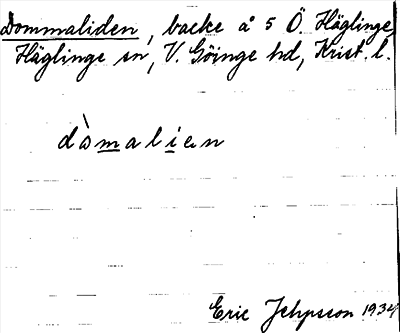 Dommaliden, backe å 5 Ö. Häglinge,
Häglinge sn, V. Göinge hd, Krist. l.
dòmalien
Eric Jehpsson 1934